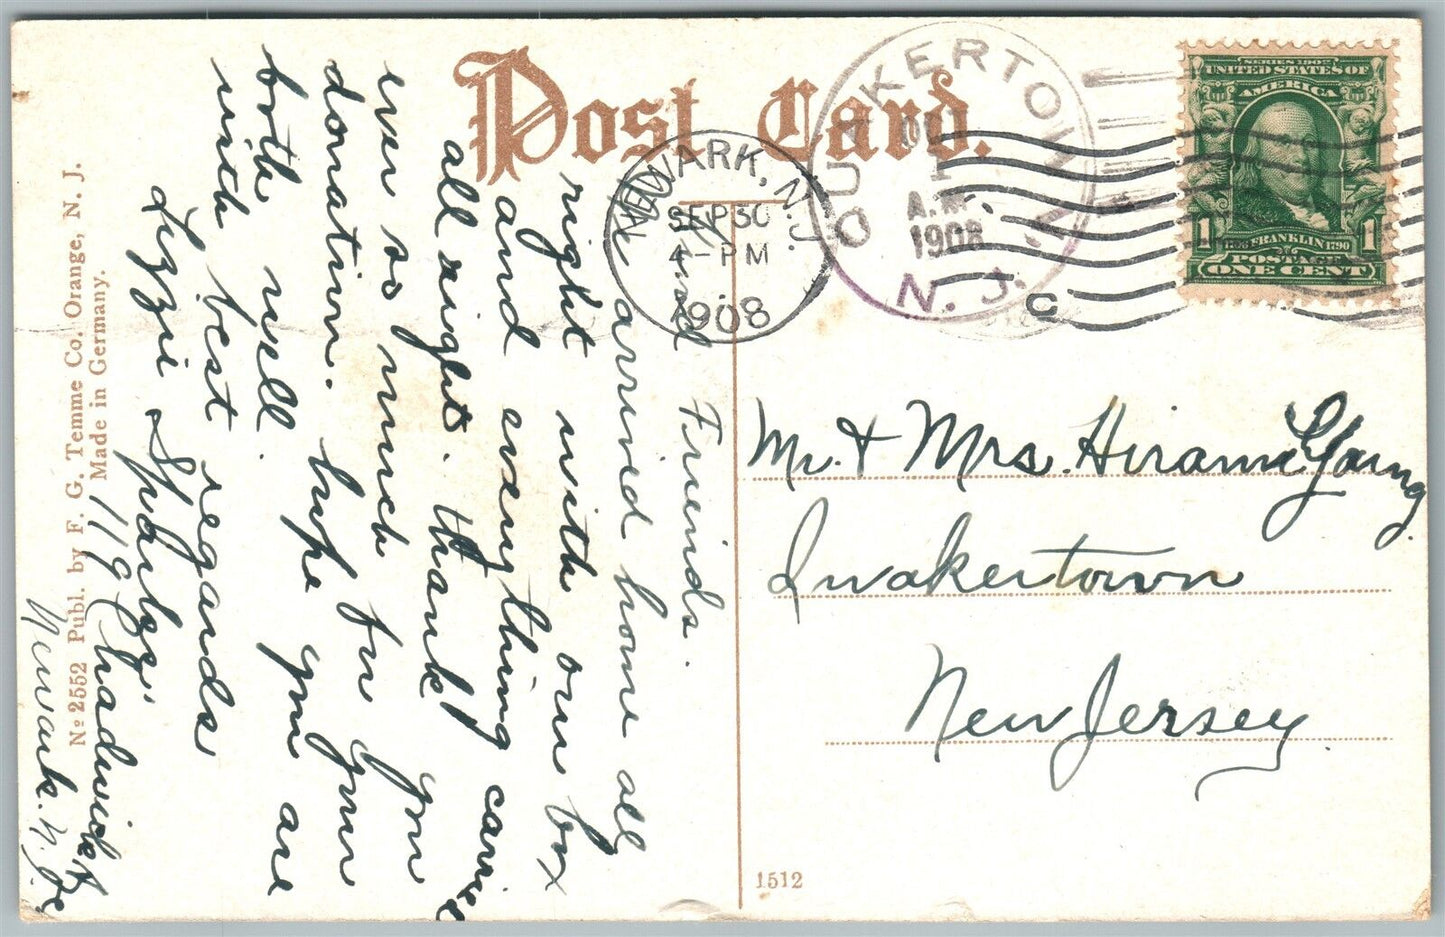 Post Card.
NEWARK, N.J.
SEP 30
4-PM
1908
QUAKERTOWN
A.M.
1908
N. J.
C
UNITED STATES OF
AMERICA
1
FRANKLIN 1790
1
POSTAGE
ONE CENT
Mr. & Mrs. Hiram Young
Quakertown
New Jersey.
1512
Kind Friends.
We arrived home all
right with our box
and everything carried
all right. thank you
ever so much for your
donation. hope you are
both well.
with best regards
Lizzie
119 Chadwick
Newark. N.J.
No 2552 Publ. by F. G. Temme Co. Orange, N. J.
Made in Germany.